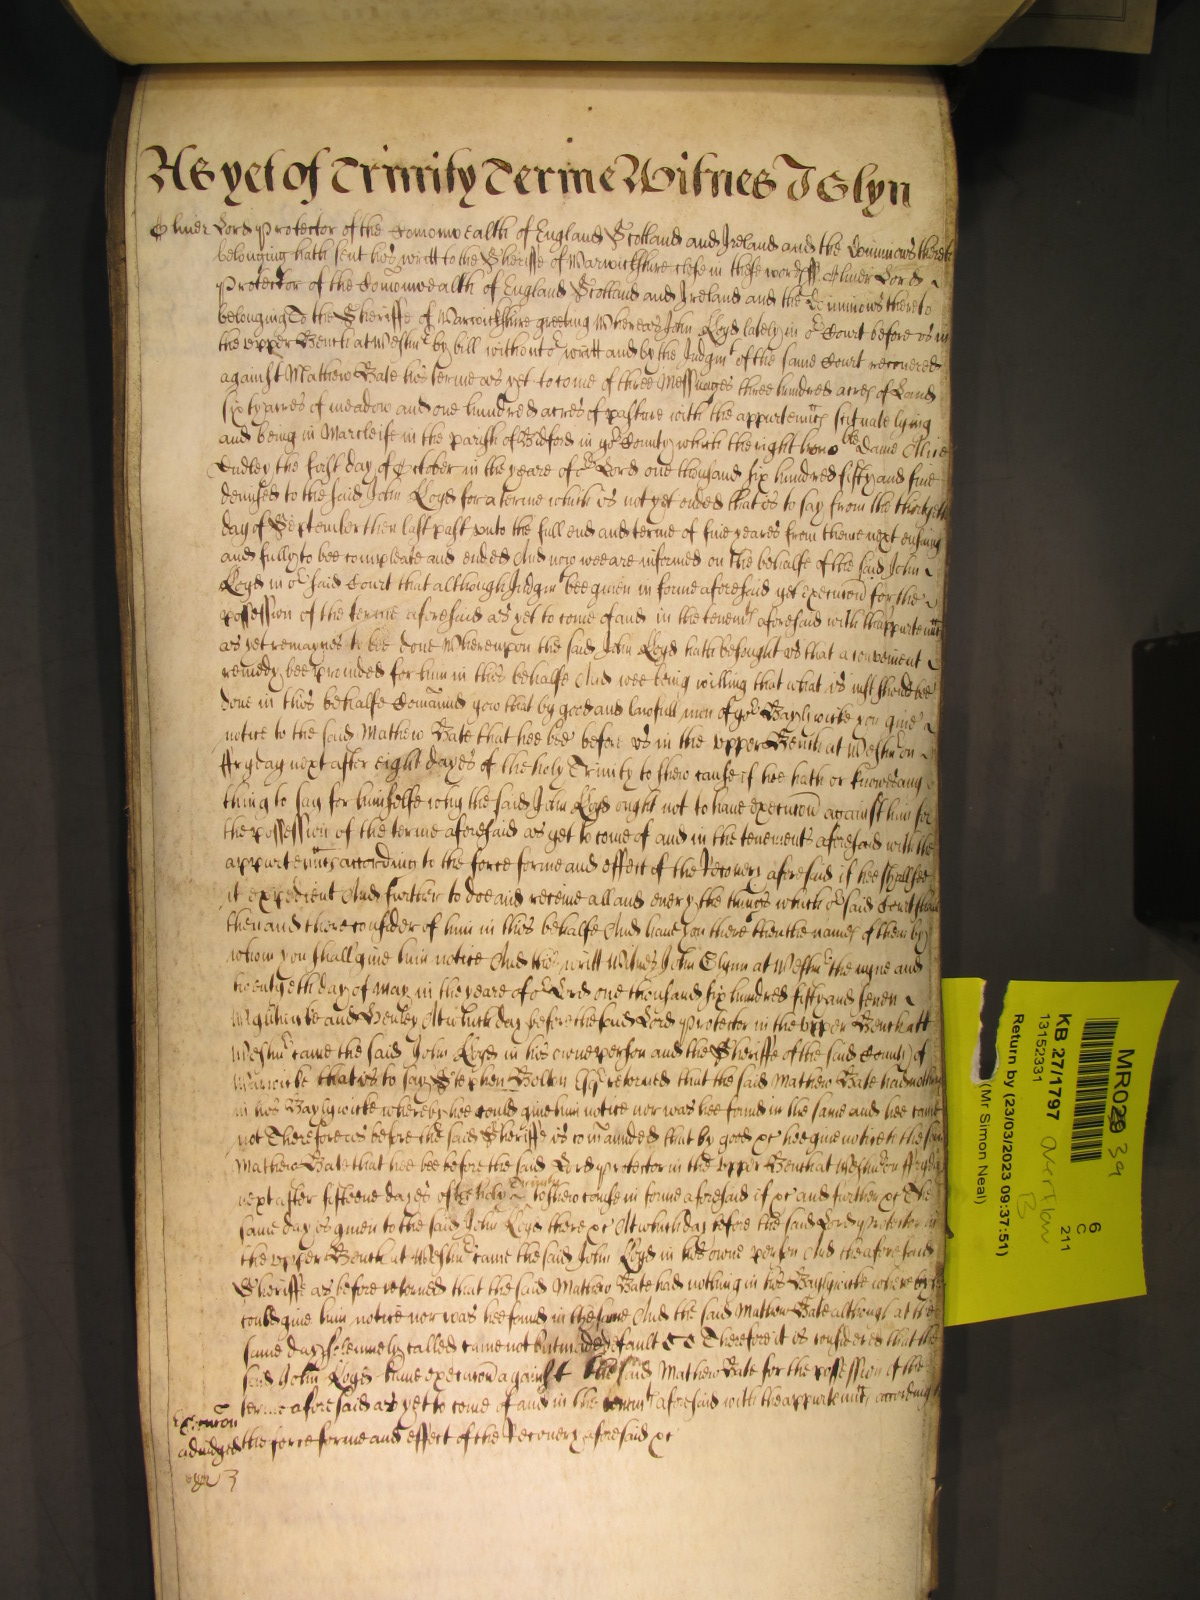 As yet of Trinity Terme Witnes J Glyn
Oliver Lord Protector of the Comonwealth of England Scotland and Ireland and the Dominions thereto
belonging hath sent his writt to the Sheriffe of Warwickshire close in these words ss. Oliver Lord
Protector of the Comonwealth of England Scotland and Ireland and the Dominions thereto
belonging To the Sheriffe of Warwickshire greeting Whereas John Loyd lately in or Court before us in
the upper Bench at Westmr by bill without or writt and by the Judgmt of the same Court recovered
against Mathew Bate his terme as yet to come of three Messuages three hundred acres of Land
sixty acres of meadow and one hundred acres of pasture with the appurtenncs scituate lying
and being in Marcleife in the parish of Bidford in yor County which the right honoble Dame Alice
Dudley the first day of October in the yeare of or Lord one thousand six hundred fifty and five
demised to the said John Loyd for a terme which is not yet ended that is to say from the thirtyeth
day of September then last past unto the full end and terme of five yeares from thence next ensuing
and fully to bee compleate and ended And now wee are informed on the behalfe of the said John
Loyd in or said Court that although Judgmt bee given in forme aforesaid yet execucon for the
possession of the terme aforesaid as yet to come of and in the tenemts aforesaid with thappurtenncs
as yet remaynes to bee done Whereupon the said John Loyd hath besought us that a convenient
remedy bee provided for him in this behalfe And wee being willing that what is just should bee
done in this behalfe Comaund you that by good and lawfull men of yor Baylywicke you give
notice to the said Mathew Bate that hee bee before us in the upper Bench at Westmr on
ffryday next after eight dayes of the holy Trinity to shew cause if hee hath or knoweth any
thing to say for himselfe why the said John Loyd ought not to have execucon against him for
the possession of the terme aforesaid as yet to come of and in the tenements aforesaid with the
appurtenncs according to the force forme and effect of the Recovery aforesaid if hee shall see
it expedient And further to doe and receive all and every the things which or said Court shall
then and there consider of him in this behalfe And have you there then the names of them by
whom you shall give him notice And this writt Witnes John Glynn at Westmr the nyne and
twentyeth day of May in the yeare of or Lord one thousand six hundred fifty and seven
and Henley At which day before the said Lord Protector in the upper Bench att
Westmr came the said John Loyd in his owne person and the Sheriffe of the said County of
Warwicke that is to say Stephen Bolton Esqr retorned that the said Mathew Bate had nothing
in his Baylywicke whereby hee could give him notice nor was hee found in the same and hee came
not Therefore as before the said Sheriffe is comaunded that by good &c hee give notice to the said
Mathew Bate that hee bee before the said Lord Protector in the upper Bench at Westmr on ffryday
next after fifteene dayes of the holy Trinity to shew cause in forme aforesaid if &c and further &c The
same day is given to the said John Loyd there &c At which day before the said Lord Protector in
the upper Bench at Westmr came the said John Loyd in his owne person And the aforesaid
Sheriffe as before retorned that the said Mathew Bate had nothing in his Baylywicke whereby hee
could give him notice nor was hee found in the same And the said Mathew Bate although at the
same day solemnely called came not but made default Therefore it is considered that the
said John Loyd have execucon against the said Mathew Bate for the possession of the
terme aforesaid as yet to come of and in the tenemts aforesaid with the appurtenncs according to
Execucon
adiudged the force forme and effect of the Recovery aforesaid &c
MR029 39
6
C
211
KB 27/1797
overflow
B
13152331
Return by (23/03/2023 09:37:51)
(Mr Simon Neal)